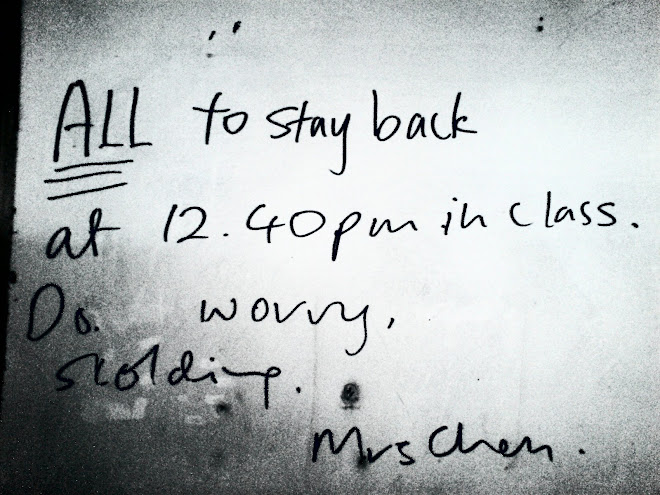 ALL to stay back
at 12.40pm in class.
Do. worry,
skolding.
Mrs Chen.